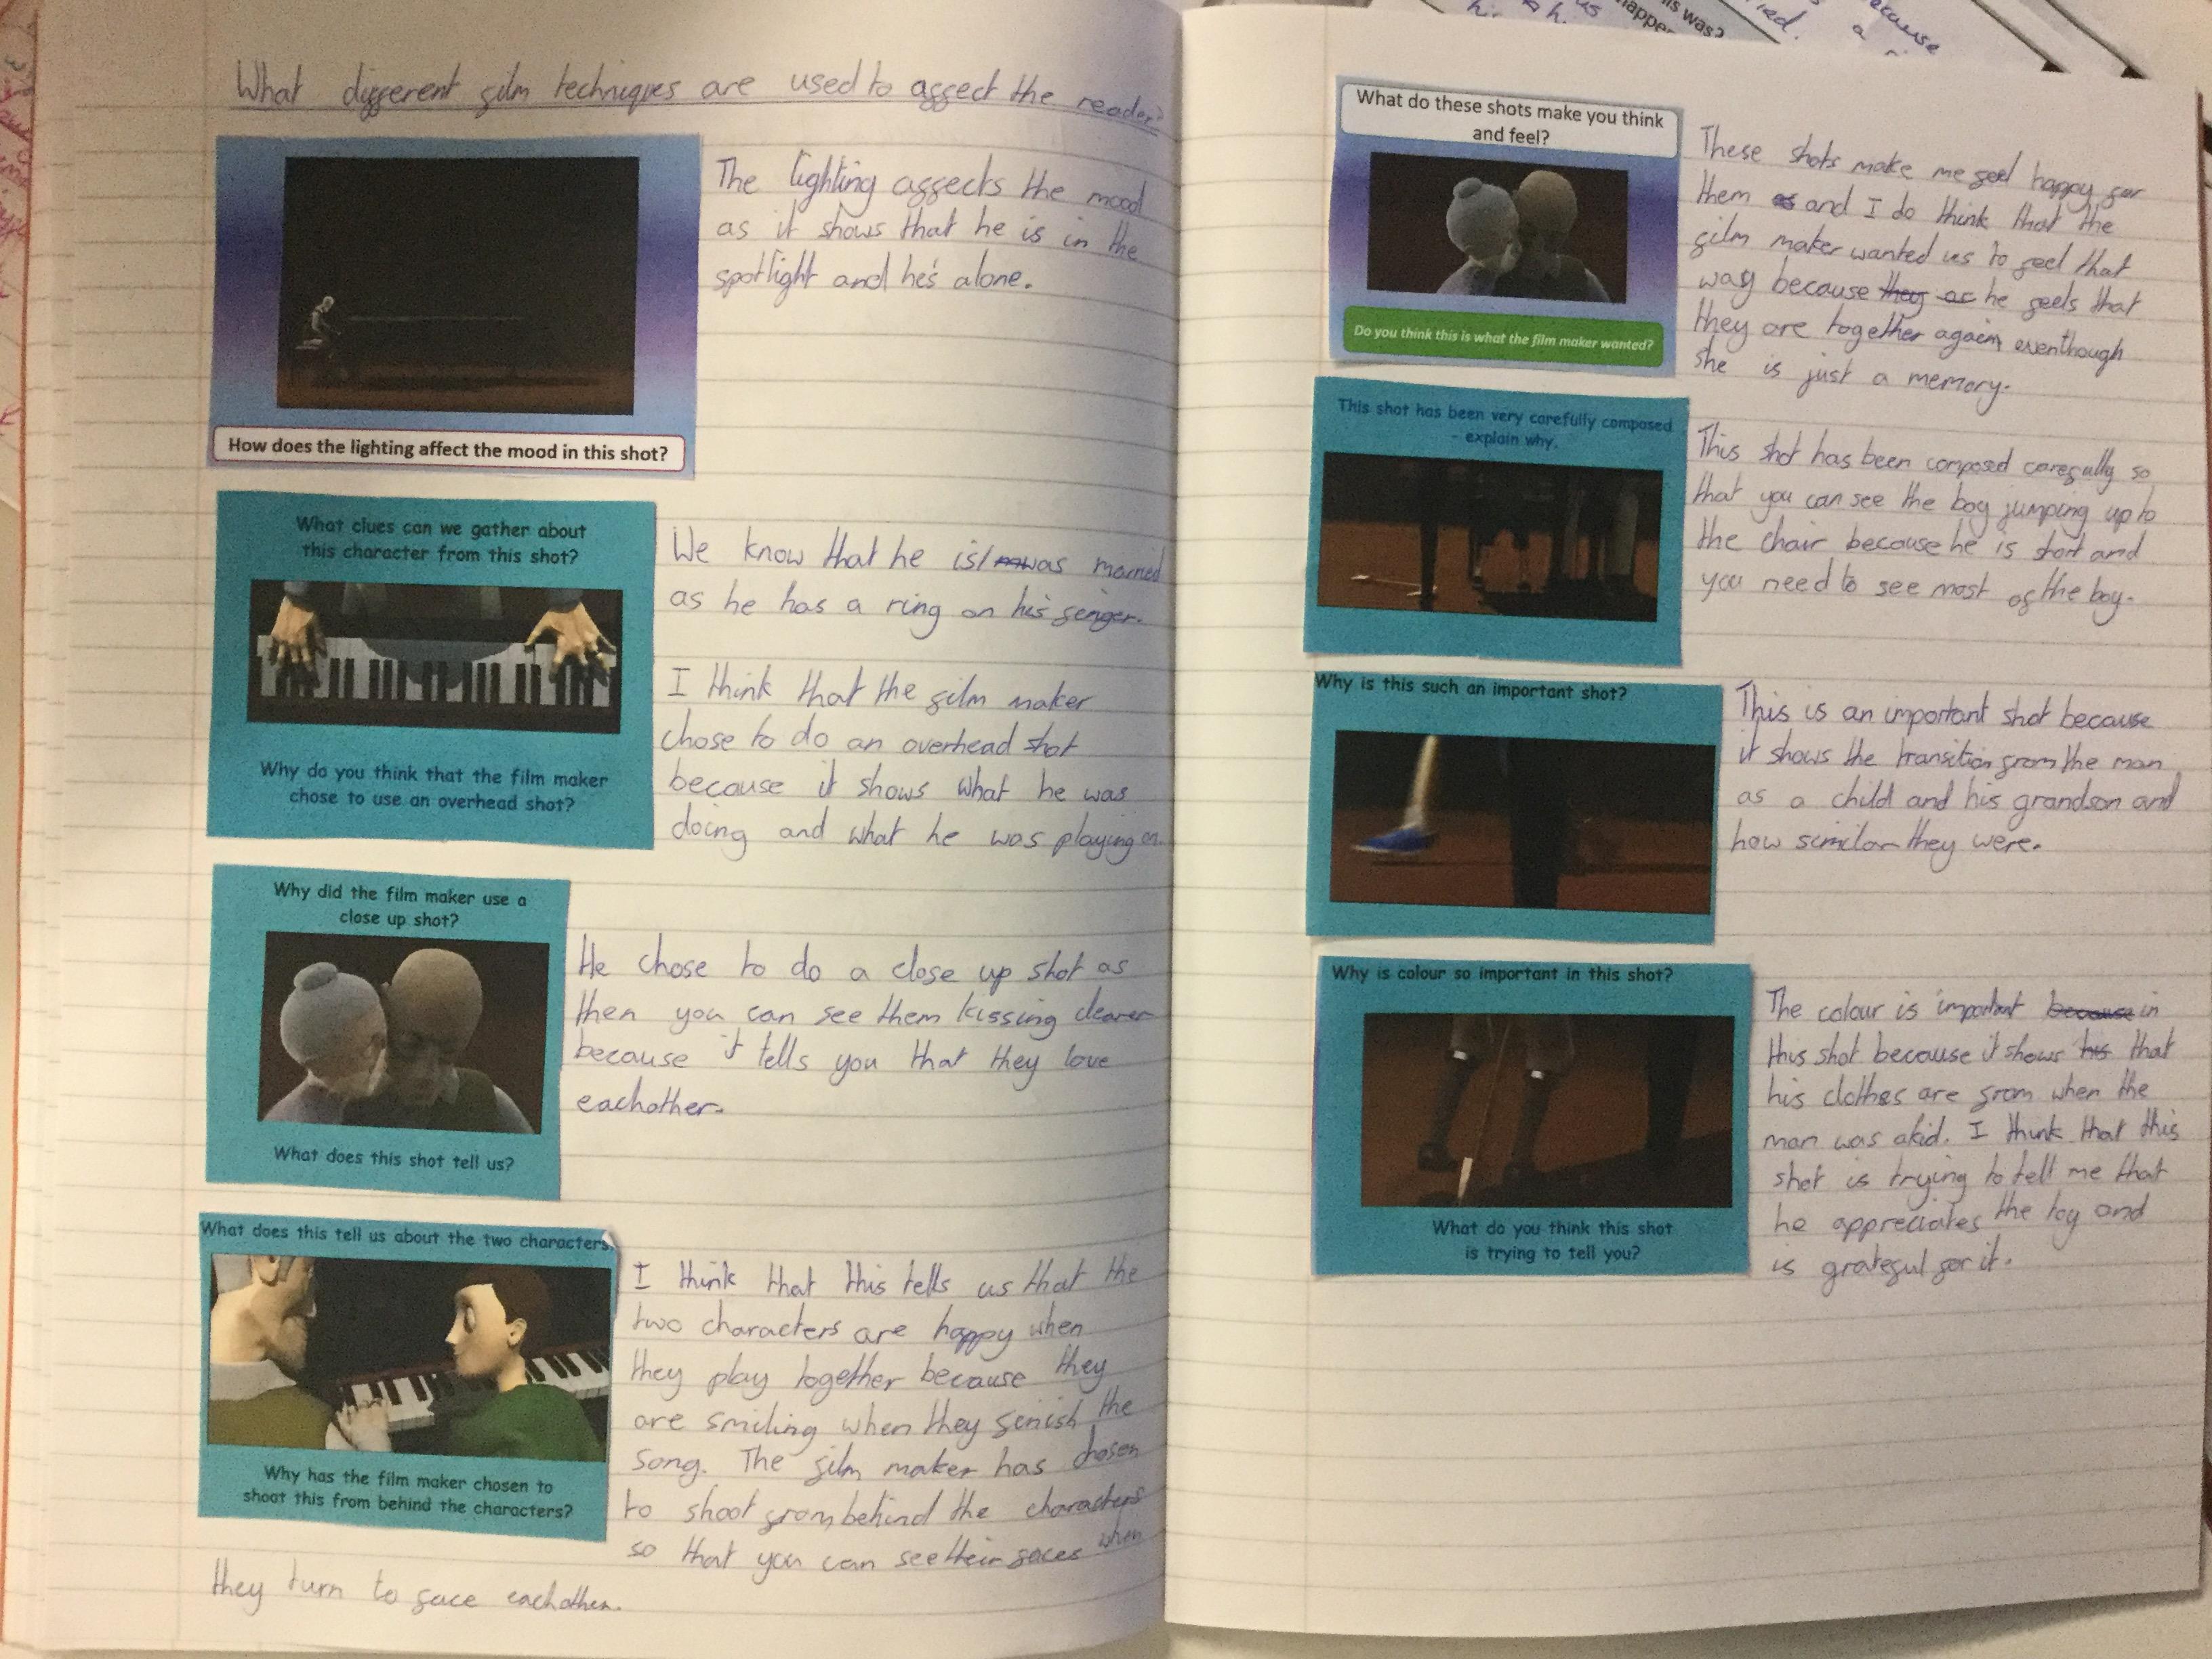 What different film techniques are used to affect the reader?
How does the lighting affect the mood in this shot?
The lighting affects the mood
as it shows that he is in the
spotlight and he's alone.
What clues can we gather about
this character from this shot?
Why do you think that the film maker
chose to use an overhead shot?
We know that he is/ was married
as he has a ring on his finger.
I think that the film maker
chose to do an overhead shot
because it shows what he was
doing and what he was playing on.
Why did the film maker use a
close up shot?
What does this shot tell us?
He chose to do a close up shot as
then you can see them kissing clearer
because it tells you that they love
eachother.
What does this tell us about the two characters
Why has the film maker chosen to
shoot this from behind the characters?
I think that this tells us that the
two characters are happy when
they play together because they
are smiling when they finish the
song. The film maker has chosen
to shoot from behind the characters
so that you can see their faces when
they turn to face eachother.
happe
is was?
ied.
a
ecause
us
What do these shots make you think
and feel?
Do you think this is what the film maker wanted?
These shots make me feel happy for
them as and I do think that the
film maker wanted us to feel that
way because they ar he feels that
they are together again, eventhough
she is just a memory.
This shot has been very carefully composed
- explain why.
This shot has been composed carefully so
that you can see the boy jumping up to
the chair because he is short and
you need to see most of the boy.
Why is this such an important shot?
This is an important shot because
it shows the transition from the man
as a child and his grandson and
how similar they were.
Why is colour so important in this shot?
What do you think this shot
is trying to tell you?
The colour is important because in
this shot because it shows his that
his clothes are from when the
man was a kid. I think that this
shot is trying to tell me that
he appreciates the toy and
is grateful for it.